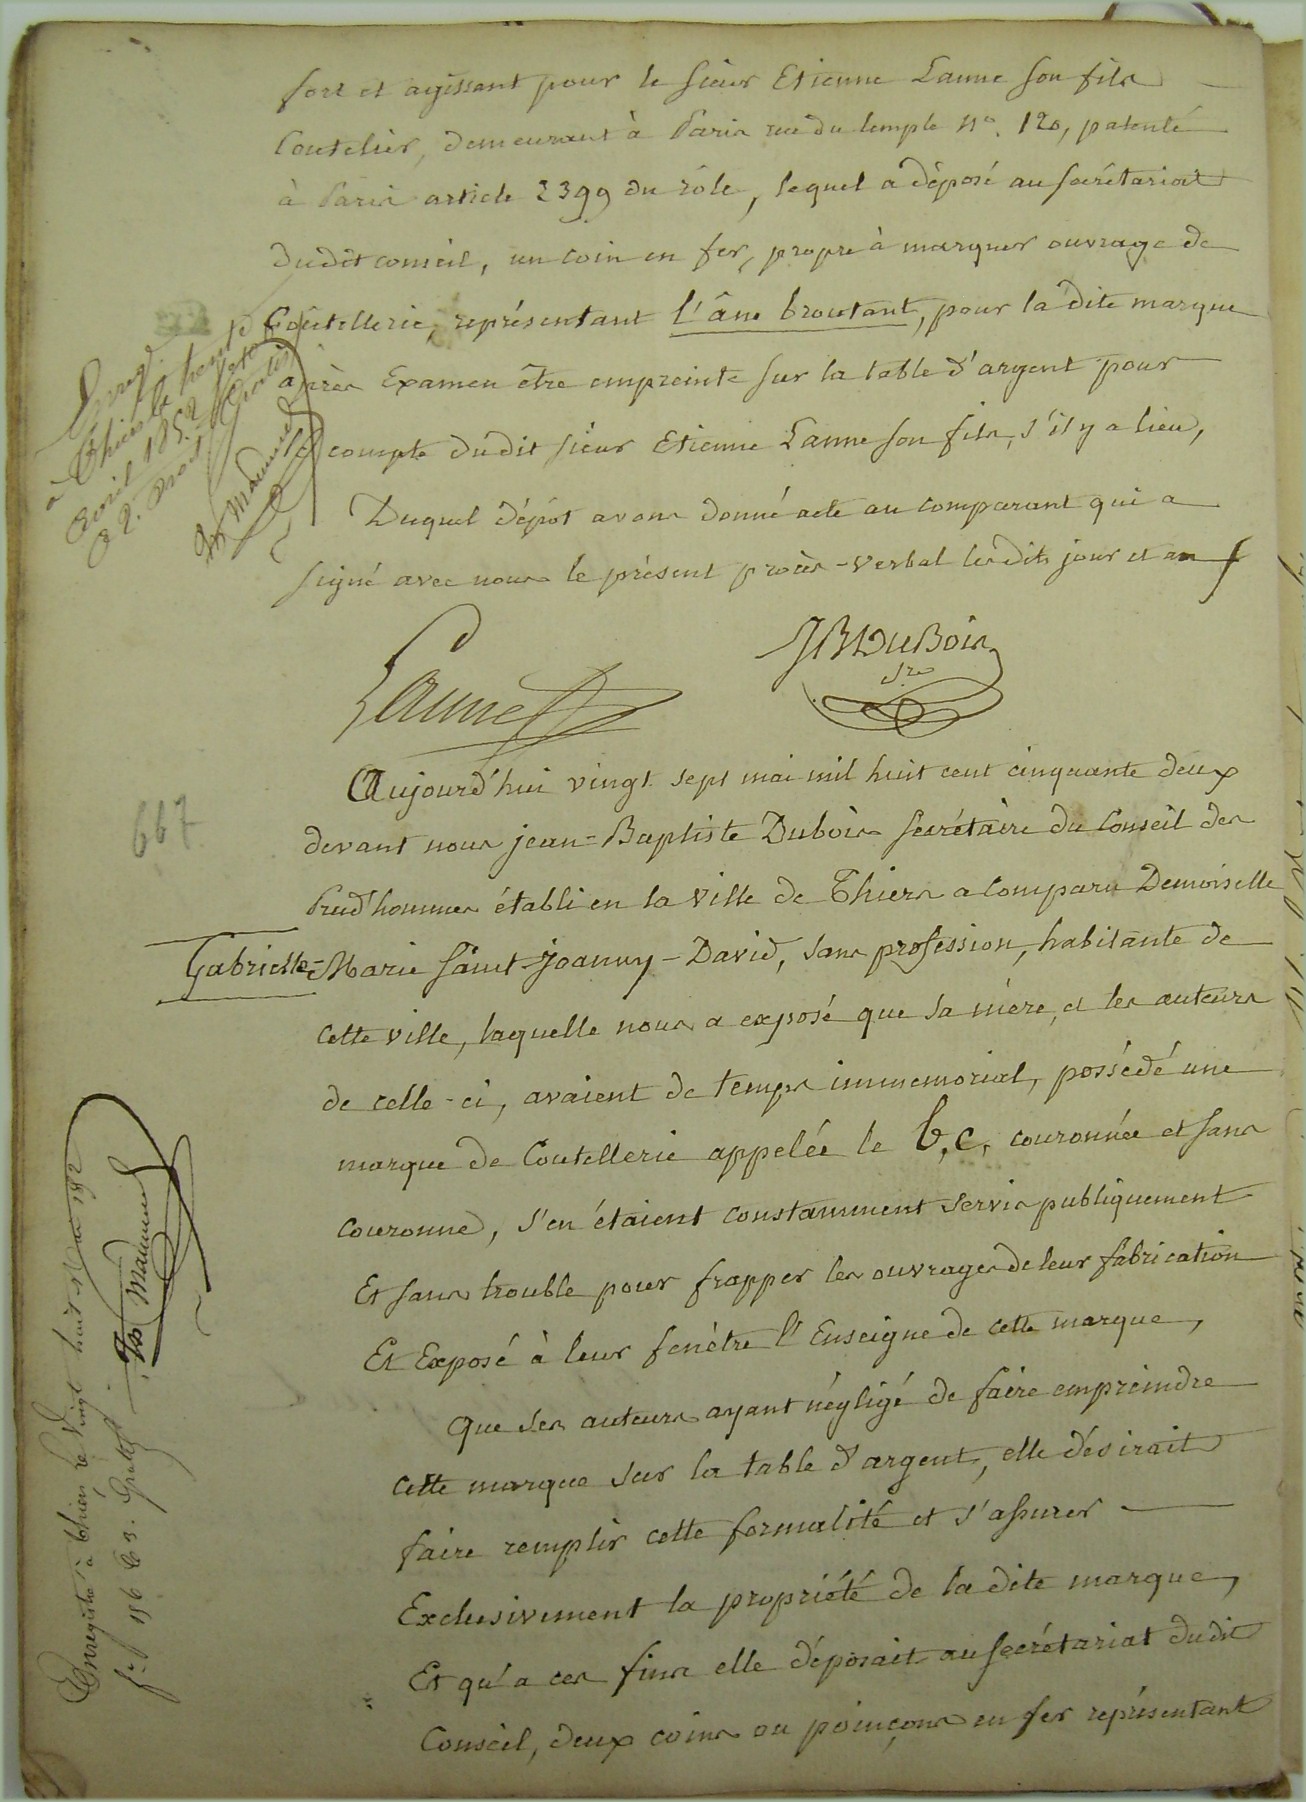 fort et agissant pour le sieur Etienne Lanne son fils
Coutelier, demeurant à Paris rue du temple N°. 120, patenté
à Paris article 2399 du rôle, lequel a déposé au secrétariat
dudit conseil, un coin en fer, propre à marquer ouvrage de
Coutellerie, représentant l'âne broutant, pour la dite marque
après Examen être empreinte sur la table d'argent pour
le compte dudit sieur Etienne Lanne son fils, s'il y a lieu,
Duquel dépôt avons donné acte au comparant qui a
signé avec nous le présent procès-verbal lesdits jour et an
Lanne
JB DuBois
Sre
à Thiers le
avril 1852
667
Aujourd'hui vingt sept mai mil huit cent cinquante deux
devant nous jean=Baptiste Dubois secrétaire du Conseil des
Prud'hommes établi en la Ville de Thiers a Comparu Demoiselle
Gabrielle-Marie Saint-Joanny-David, sans profession, habitante de
cette ville, laquelle nous a exposé que sa mère, et les auteurs
de celle-ci, avaient de temps immemorial, possédé une
marque de Coutellerie appelée le b,c, couronnée et sans
couronne, s'en étaient constamment servis publiquement
Et sans trouble pour frapper les ouvrages de leur fabrication
Et Exposé à leur fenêtre l'Enseigne de cette marque,
Que ses auteurs ayant négligé de faire empreindre
cette marque sur la table d'argent, elle désirait
faire remplir cette formalité et s'assurer
Exclusivement la propriété de la dite marque,
Et qu'a ces fins elle déposait au secrétariat dudit
Conseil, deux coins ou poinçons en fer représentant
Enregistré à Thiers le vingt huit Mai 1852
f° 156 C 3.